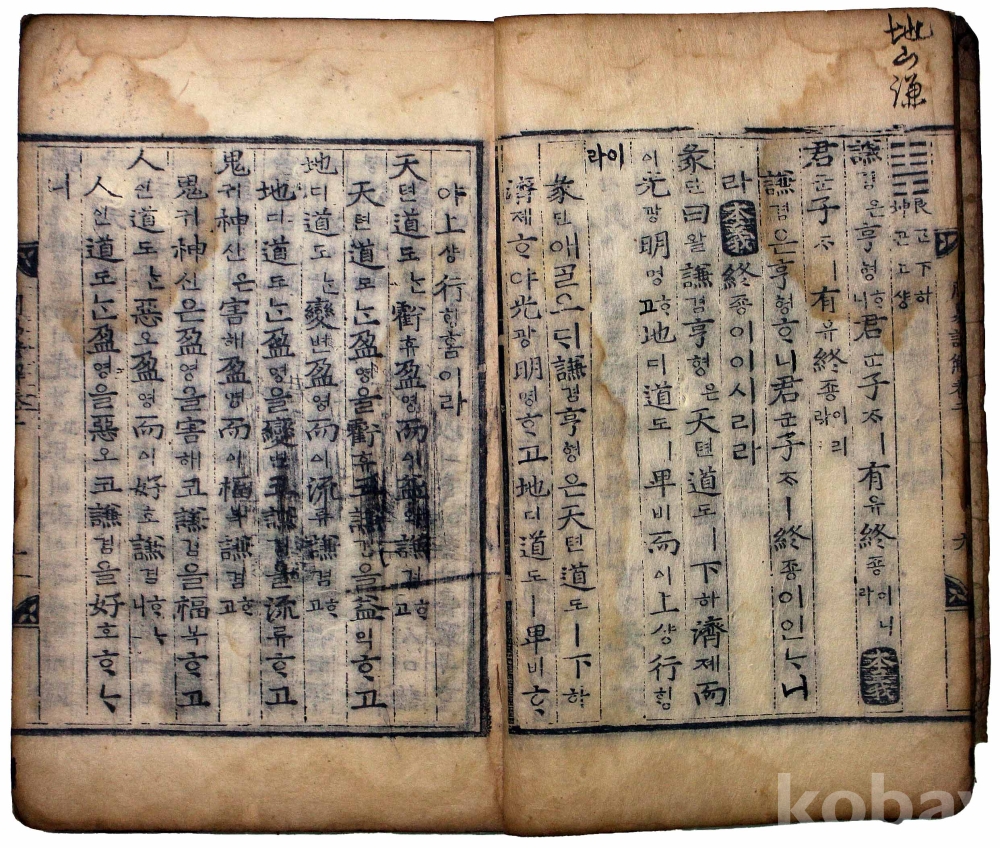 地山謙
䷎艮간下하坤곤上샹
謙겸은亨형ᄒᆞ니君군子ᄌᆞㅣ有유終죵이니라本義
君군子ᄌᆞㅣ有유終죵이리라
謙겸은亨형ᄒᆞ니君군子ᄌᆞㅣ終죵이인ᄂᆞ니
라本義終죵이이시리라
彖단曰왈謙겸亨형은天텬道도ㅣ下하濟졔而
이光광明명ᄒᆞ고地디道도ㅣ卑비而이上샹行ᄒᆡᆼ
이라
彖단애ᄀᆞᆯ오ᄃᆡ謙겸亨형은天텬道도ㅣ下하
濟졔ᄒᆞ야光광明명ᄒᆞ고地디道도ㅣ卑비ᄒᆞ
야上샹行ᄒᆡᆼ홈이라
天텬道도ᄂᆞᆫ虧휴盈영而이益익謙겸ᄒᆞ고
天텬道도ᄂᆞᆫ盈영을虧휴코謙겸을益익ᄒᆞ고
地디道도ᄂᆞᆫ變변盈영而이流류謙겸ᄒᆞ고
地디道도ᄂᆞᆫ盈영을變변코謙겸을流류ᄒᆞ고
鬼귀神신은害해盈영而이福복謙겸ᄒᆞ고
鬼귀神신은盈영을害해코謙겸을福복ᄒᆞ고
人인道도ᄂᆞᆫ惡오盈영而이好호謙겸ᄒᆞᄂᆞ니
人인道도ᄂᆞᆫ盈영을惡오코謙겸을好호ᄒᆞᄂᆞ
니
kobay